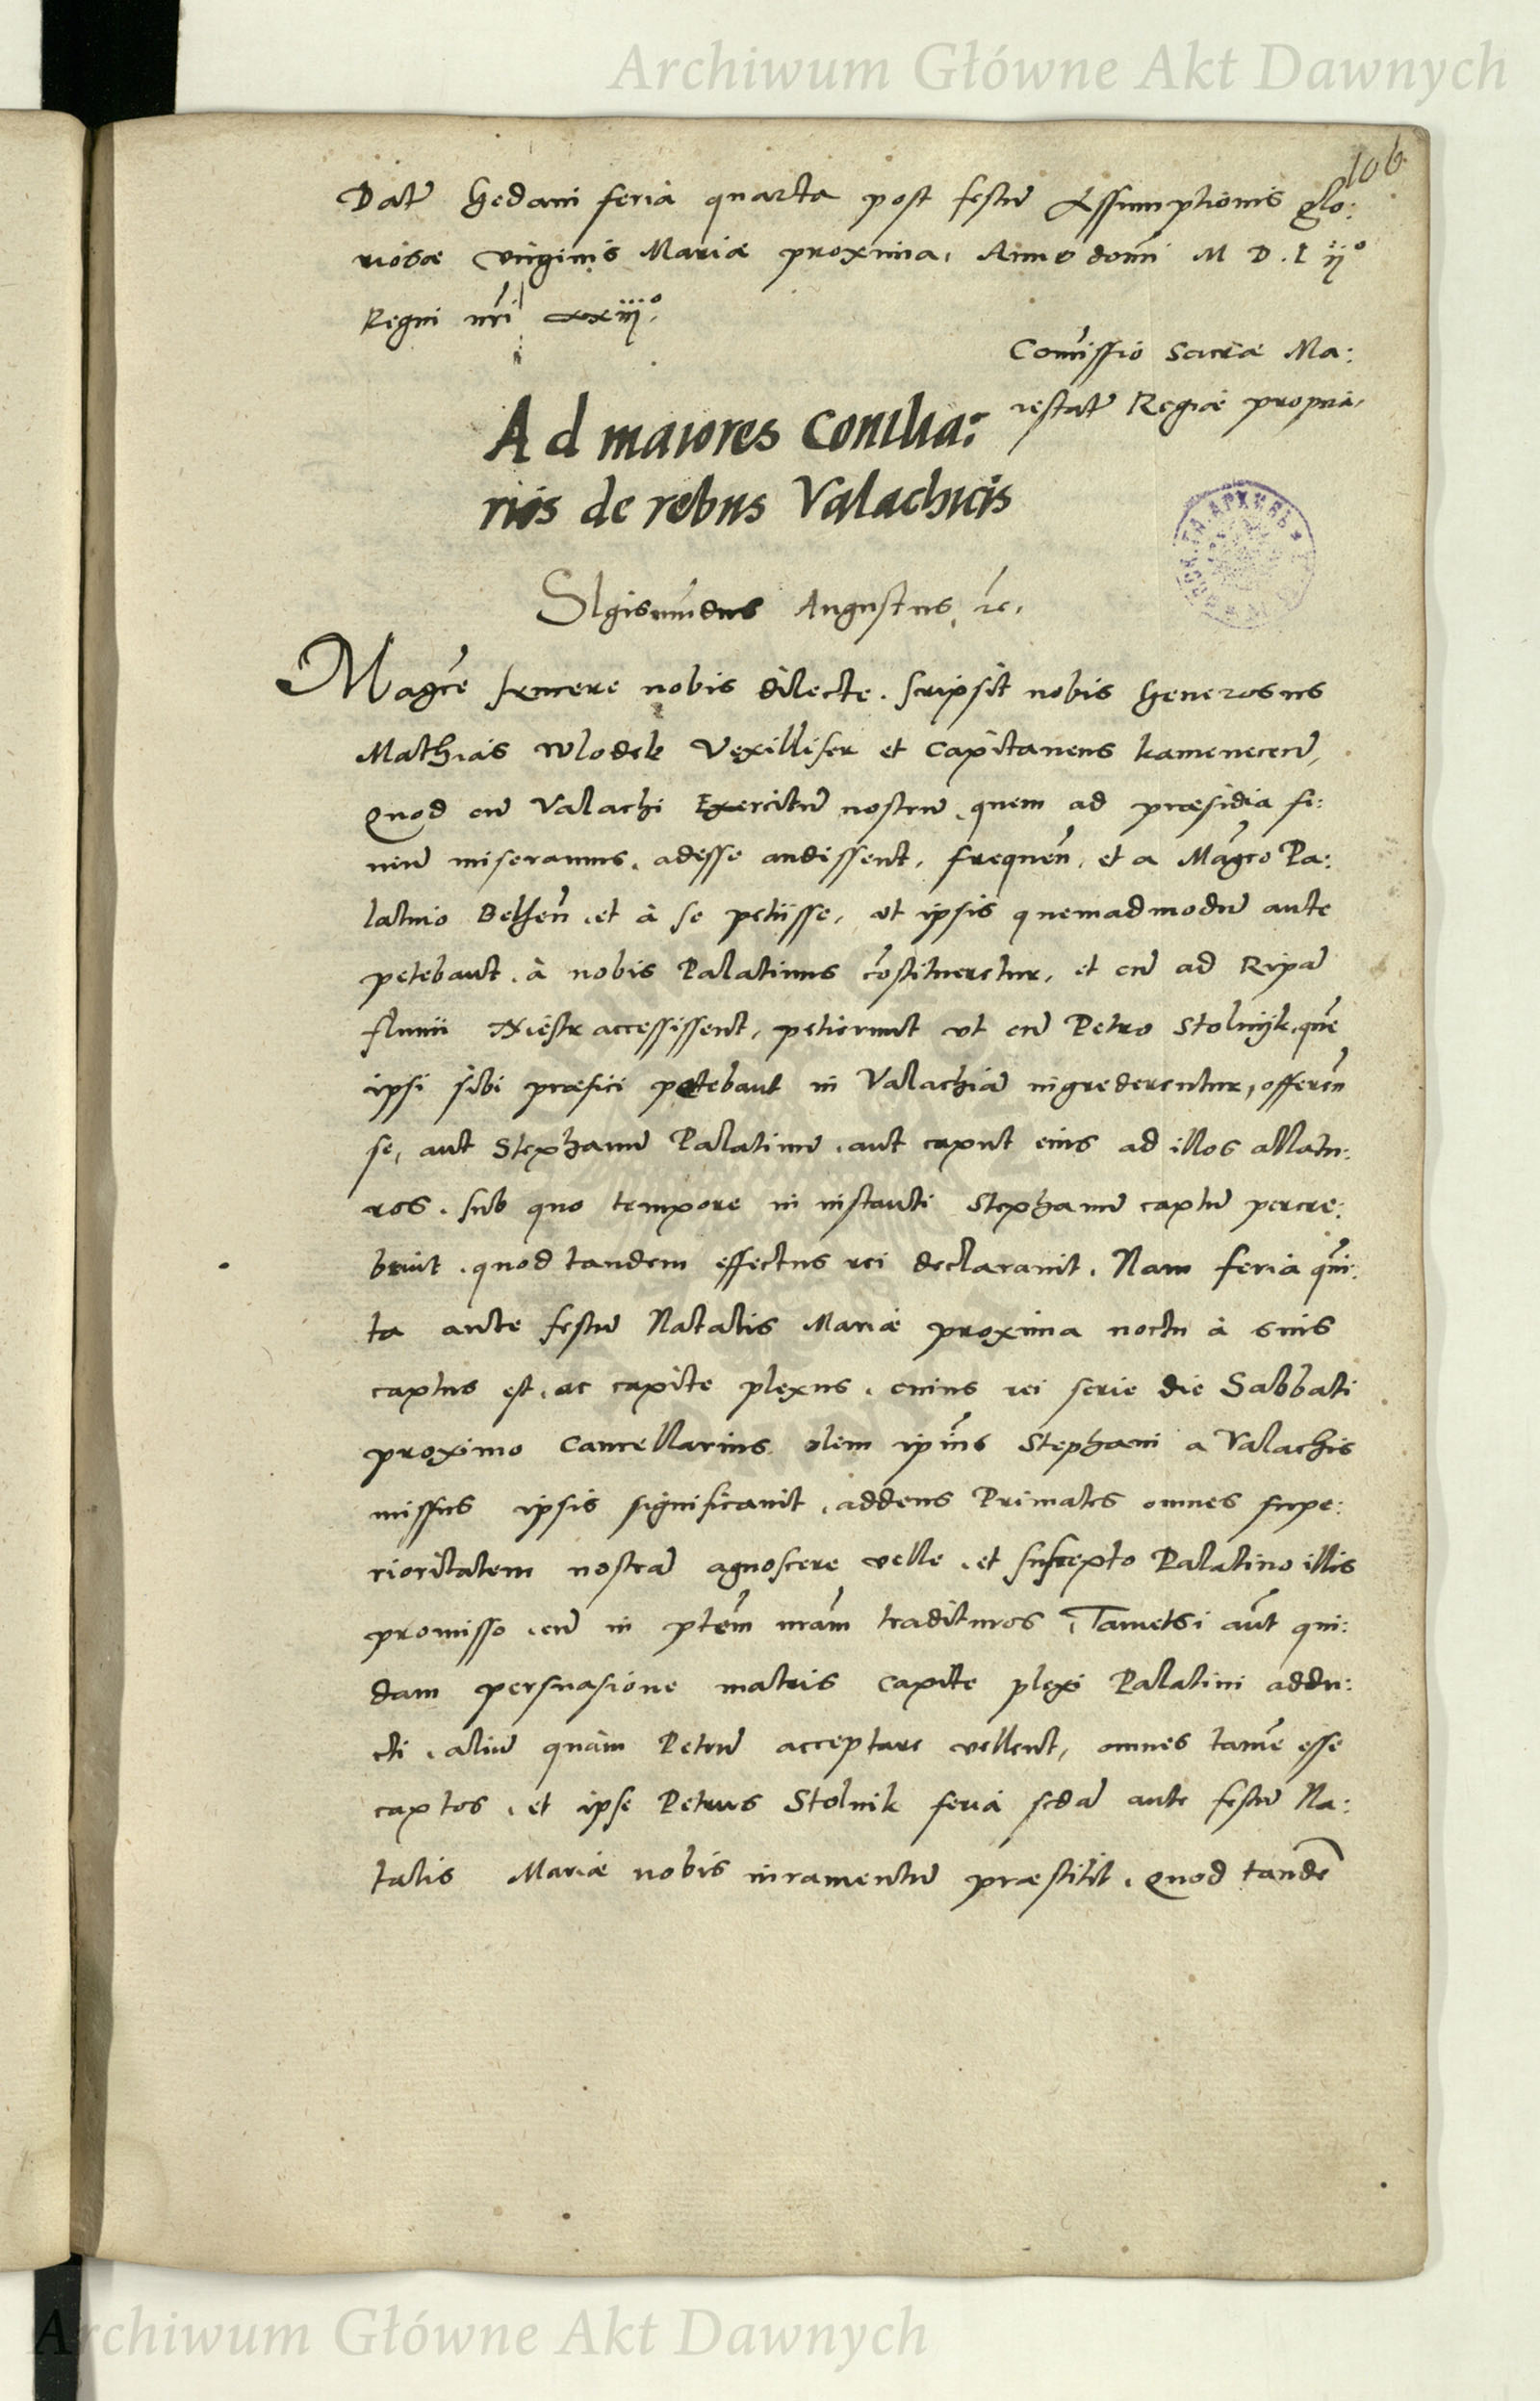 Archiwum Główne Akt Dawnych
106
Datū Gedani feria quarta post festū Assumptionis glo:
riosae virginis Mariae proxima, Anno domī M D. L ijº
Regni nrī xxiijº.
Com̄issio Sacrae Ma:
iestatis Regiae propria,
Ad maiores Consilia:
rios de rebus Valachicis
SIgismūdus Augustus, rc,
Magce syncere nobis dilecte. scripsit nobis Generosus
Mathias Wlodek Vexillifer et Capitaneus kamenecen̄,
Quod cū Valachi Exercitū nostrū, quem ad praesidia fi:
niū miseramus, adesse audissent, frequen̄, et a Magco Pa:
latino Belzen̄, et à se petiisse, ut ipsis quemadmodū ante
petebant, à nobis Palatinus cōstitueretur, et cū ad Ripā
fluuii Niestr accessissent, petierunt ut cū Petro Stolnijk, quē
ipsi sibi praefici petebant in Valachiā ingrederentur, offeren̄
se, aut Stephanū Palatinū, aut caput eius ad illos allatu:
ros. sub quo tempore in instanti Stephanū captū percre:
bruit, quod tandem effectus rei declarauit. Nam feria quī:
ta ante festū Natalis Mariae proxima noctu à suis
captus est, ac capite plexus, cuius rei serie die Sabbati
proximo Cancellarius olim ipīus Stephani a Valachis
missus ipsis significauit, addens Primates omnes supe:
rioritatem nostrā agnoscere velle, et suscepto Palatino illis
promisso, cū in ptēm nrām tradituros, Tametsi aūt qui:
dam persuasione matris capite plexi Palatini addu:
cti, aliū quàm Petrū acceptare vellent, omnes tamē esse
captos, et ipse Petrus Stolnik feria scdā ante festū Na:
talis Mariae nobis iuramentū praestitit. Quod tandē
Archiwum Główne Akt Dawnych